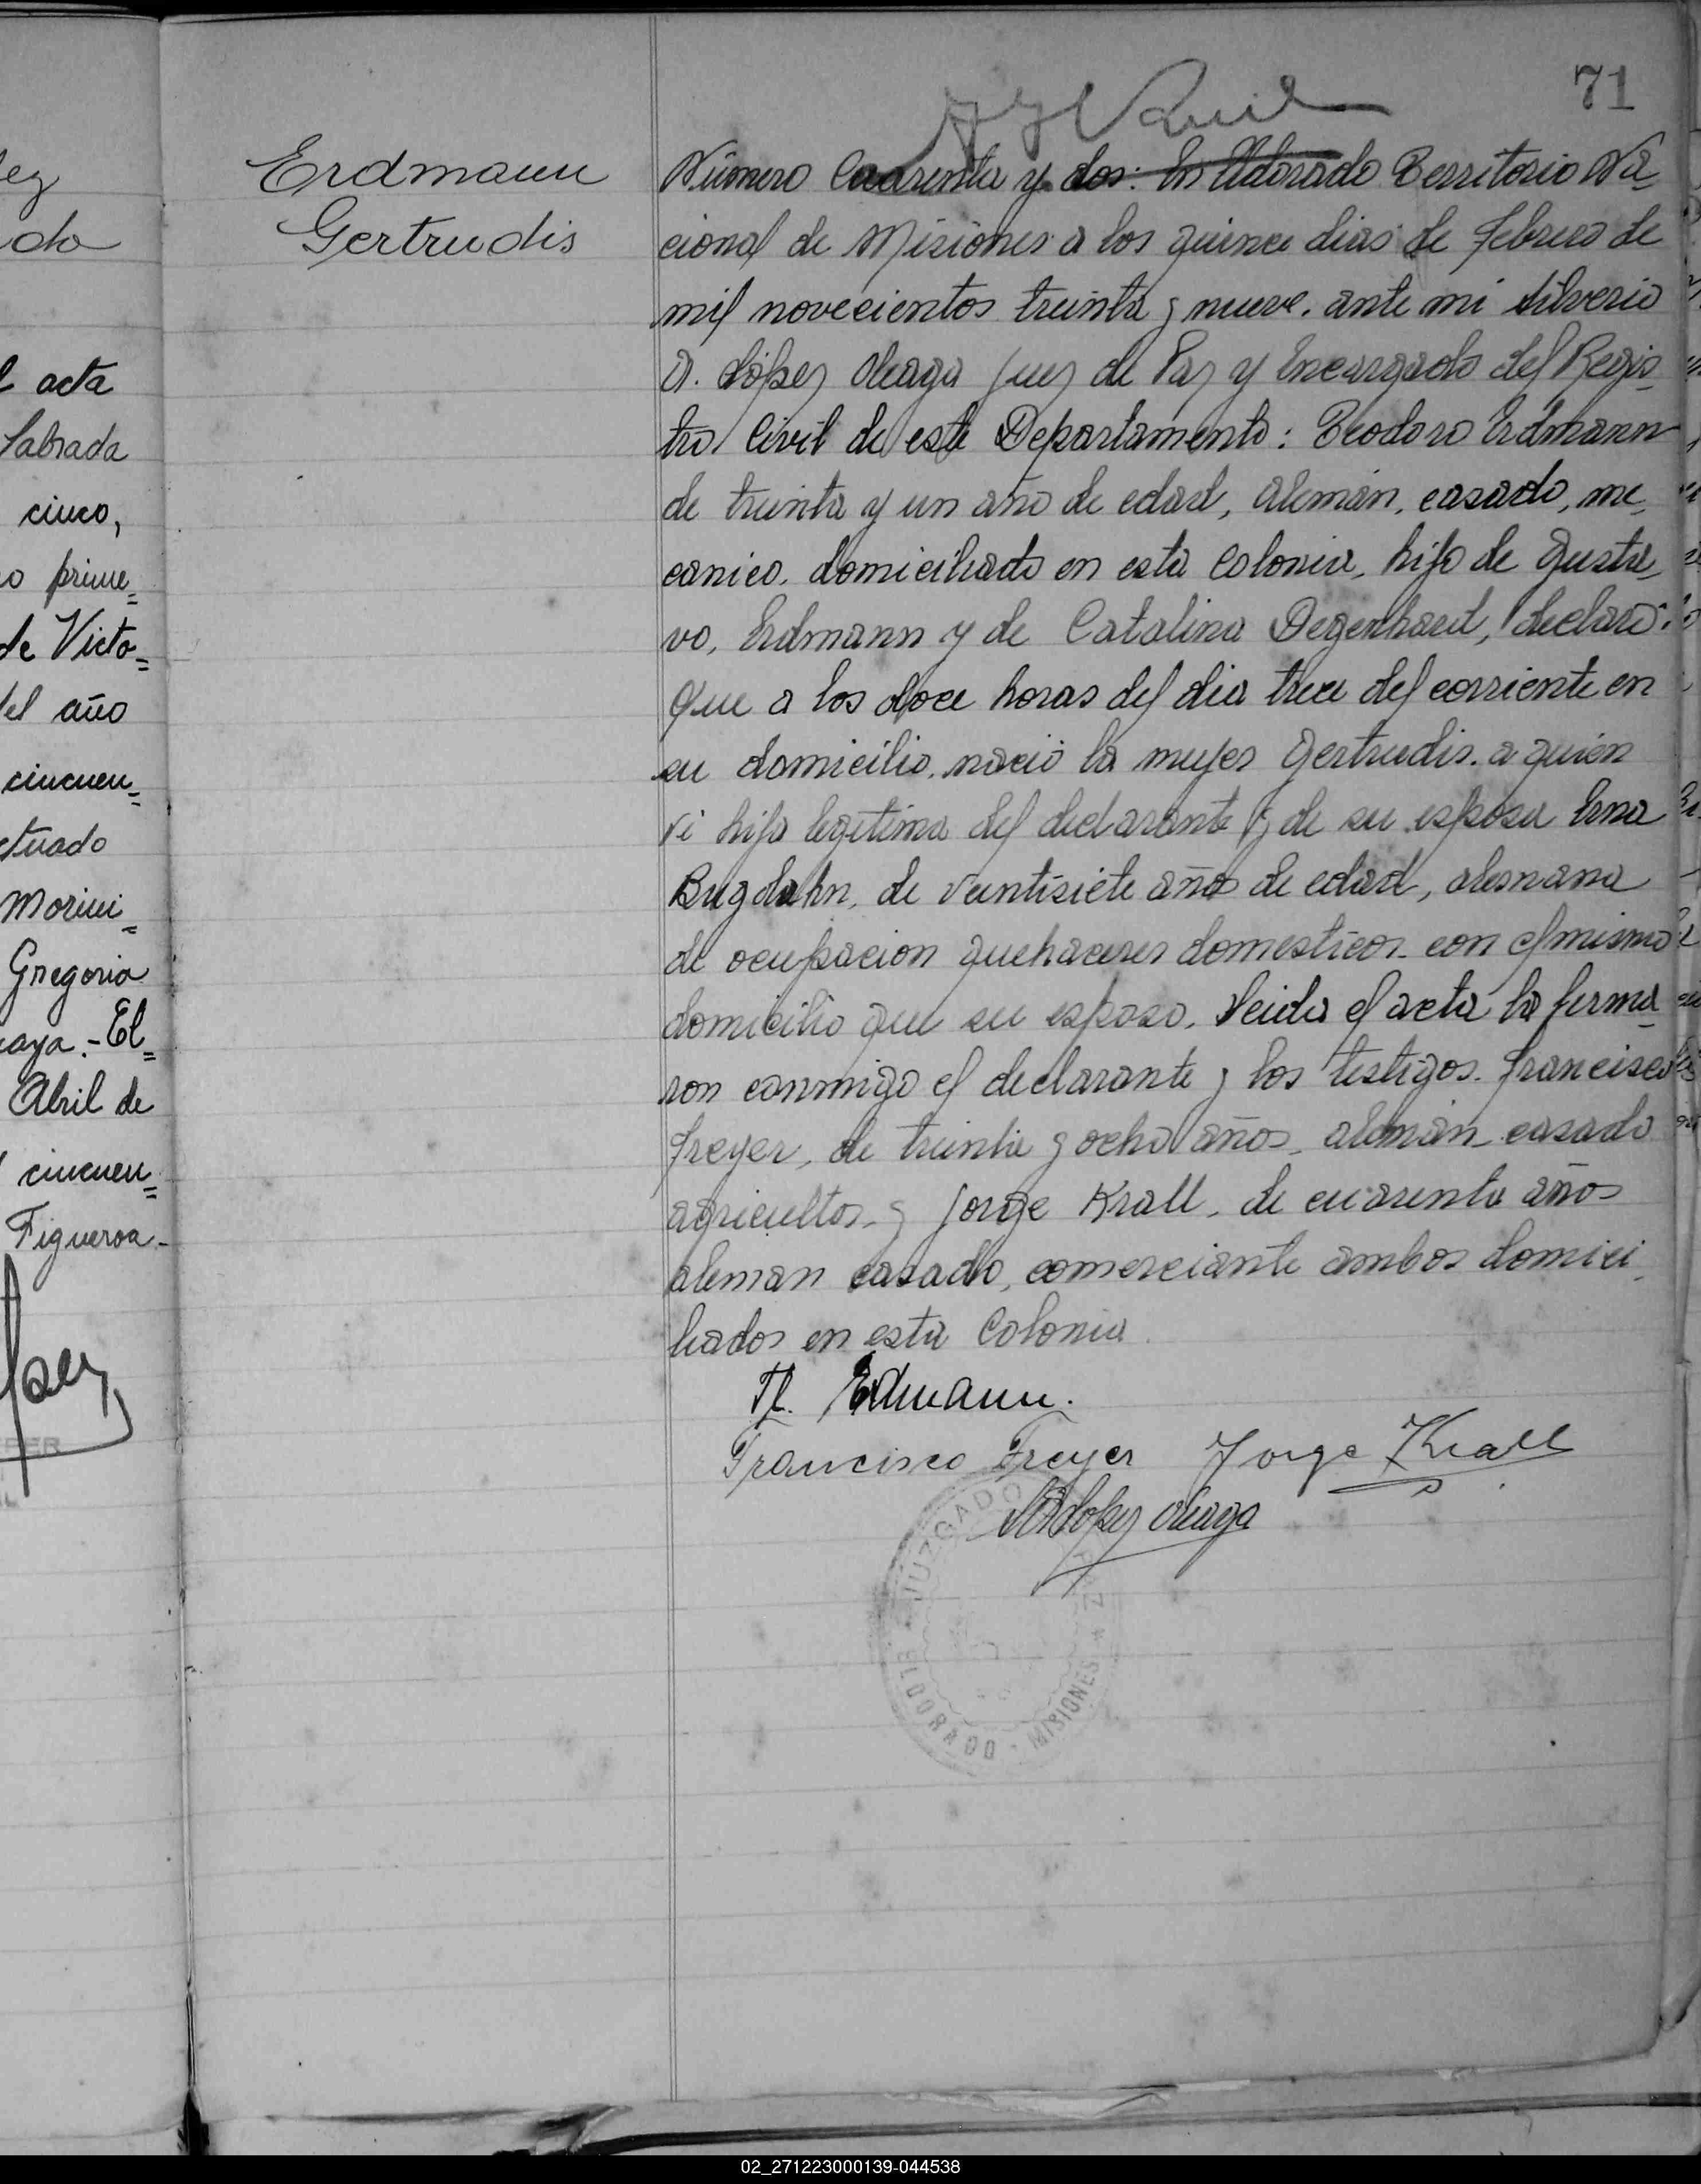 71
Erdmann
Gertrudis
Número Cuarenta y dos: En Eldorado Territorio Na=
cional de Misiones a los quince dias de Febrero de
mil novecientos treinta y nueve. ante mi Silverio
A. López Aleaga Juez de Paz y Encargado del Regis=
tro Civil de este Departamento: Teodoro Erdmann
de treinta y un año de edad, Alemán, casado, me=
canico. domiciliado en esta Colonia, hijo de Gusta=
vo, Erdmann y de Catalina Degenhard, declaró:
Que a los doce horas del dia trece del corriente en
su domicilio. nació la mujer Gertrudis. a quien
vi hija legítima del declarante y de su esposa Erna
Bugdahn, de veintisiete años de edad, alemana
de ocupacion quehaceres domesticos. con el mismo
domicilio que su esposo. Leida el acta la firma=
ron conmigo el declarante y los testigos. Francisco
Freyer, de treinta y ocho años, alemán casado
agricultor y Jorge Krall, de cuarenta años
aleman casado, comerciante ambos domici=
liados en esta Colonia.
Th. Erdmann.
Francisco Freyer Jorge Krall
SALopez Aleaga
JUZGADO DE PAZ * MISIONES - ELDORADO
ez
do
l acta
Sabrada
cinco,
o prime=
de Victo=
del año
cincuen=
ctuado
Morini=
Gregoria
caya.- El=
Abril de
cincuen=
Figueroa.-
02_271223000139-044538